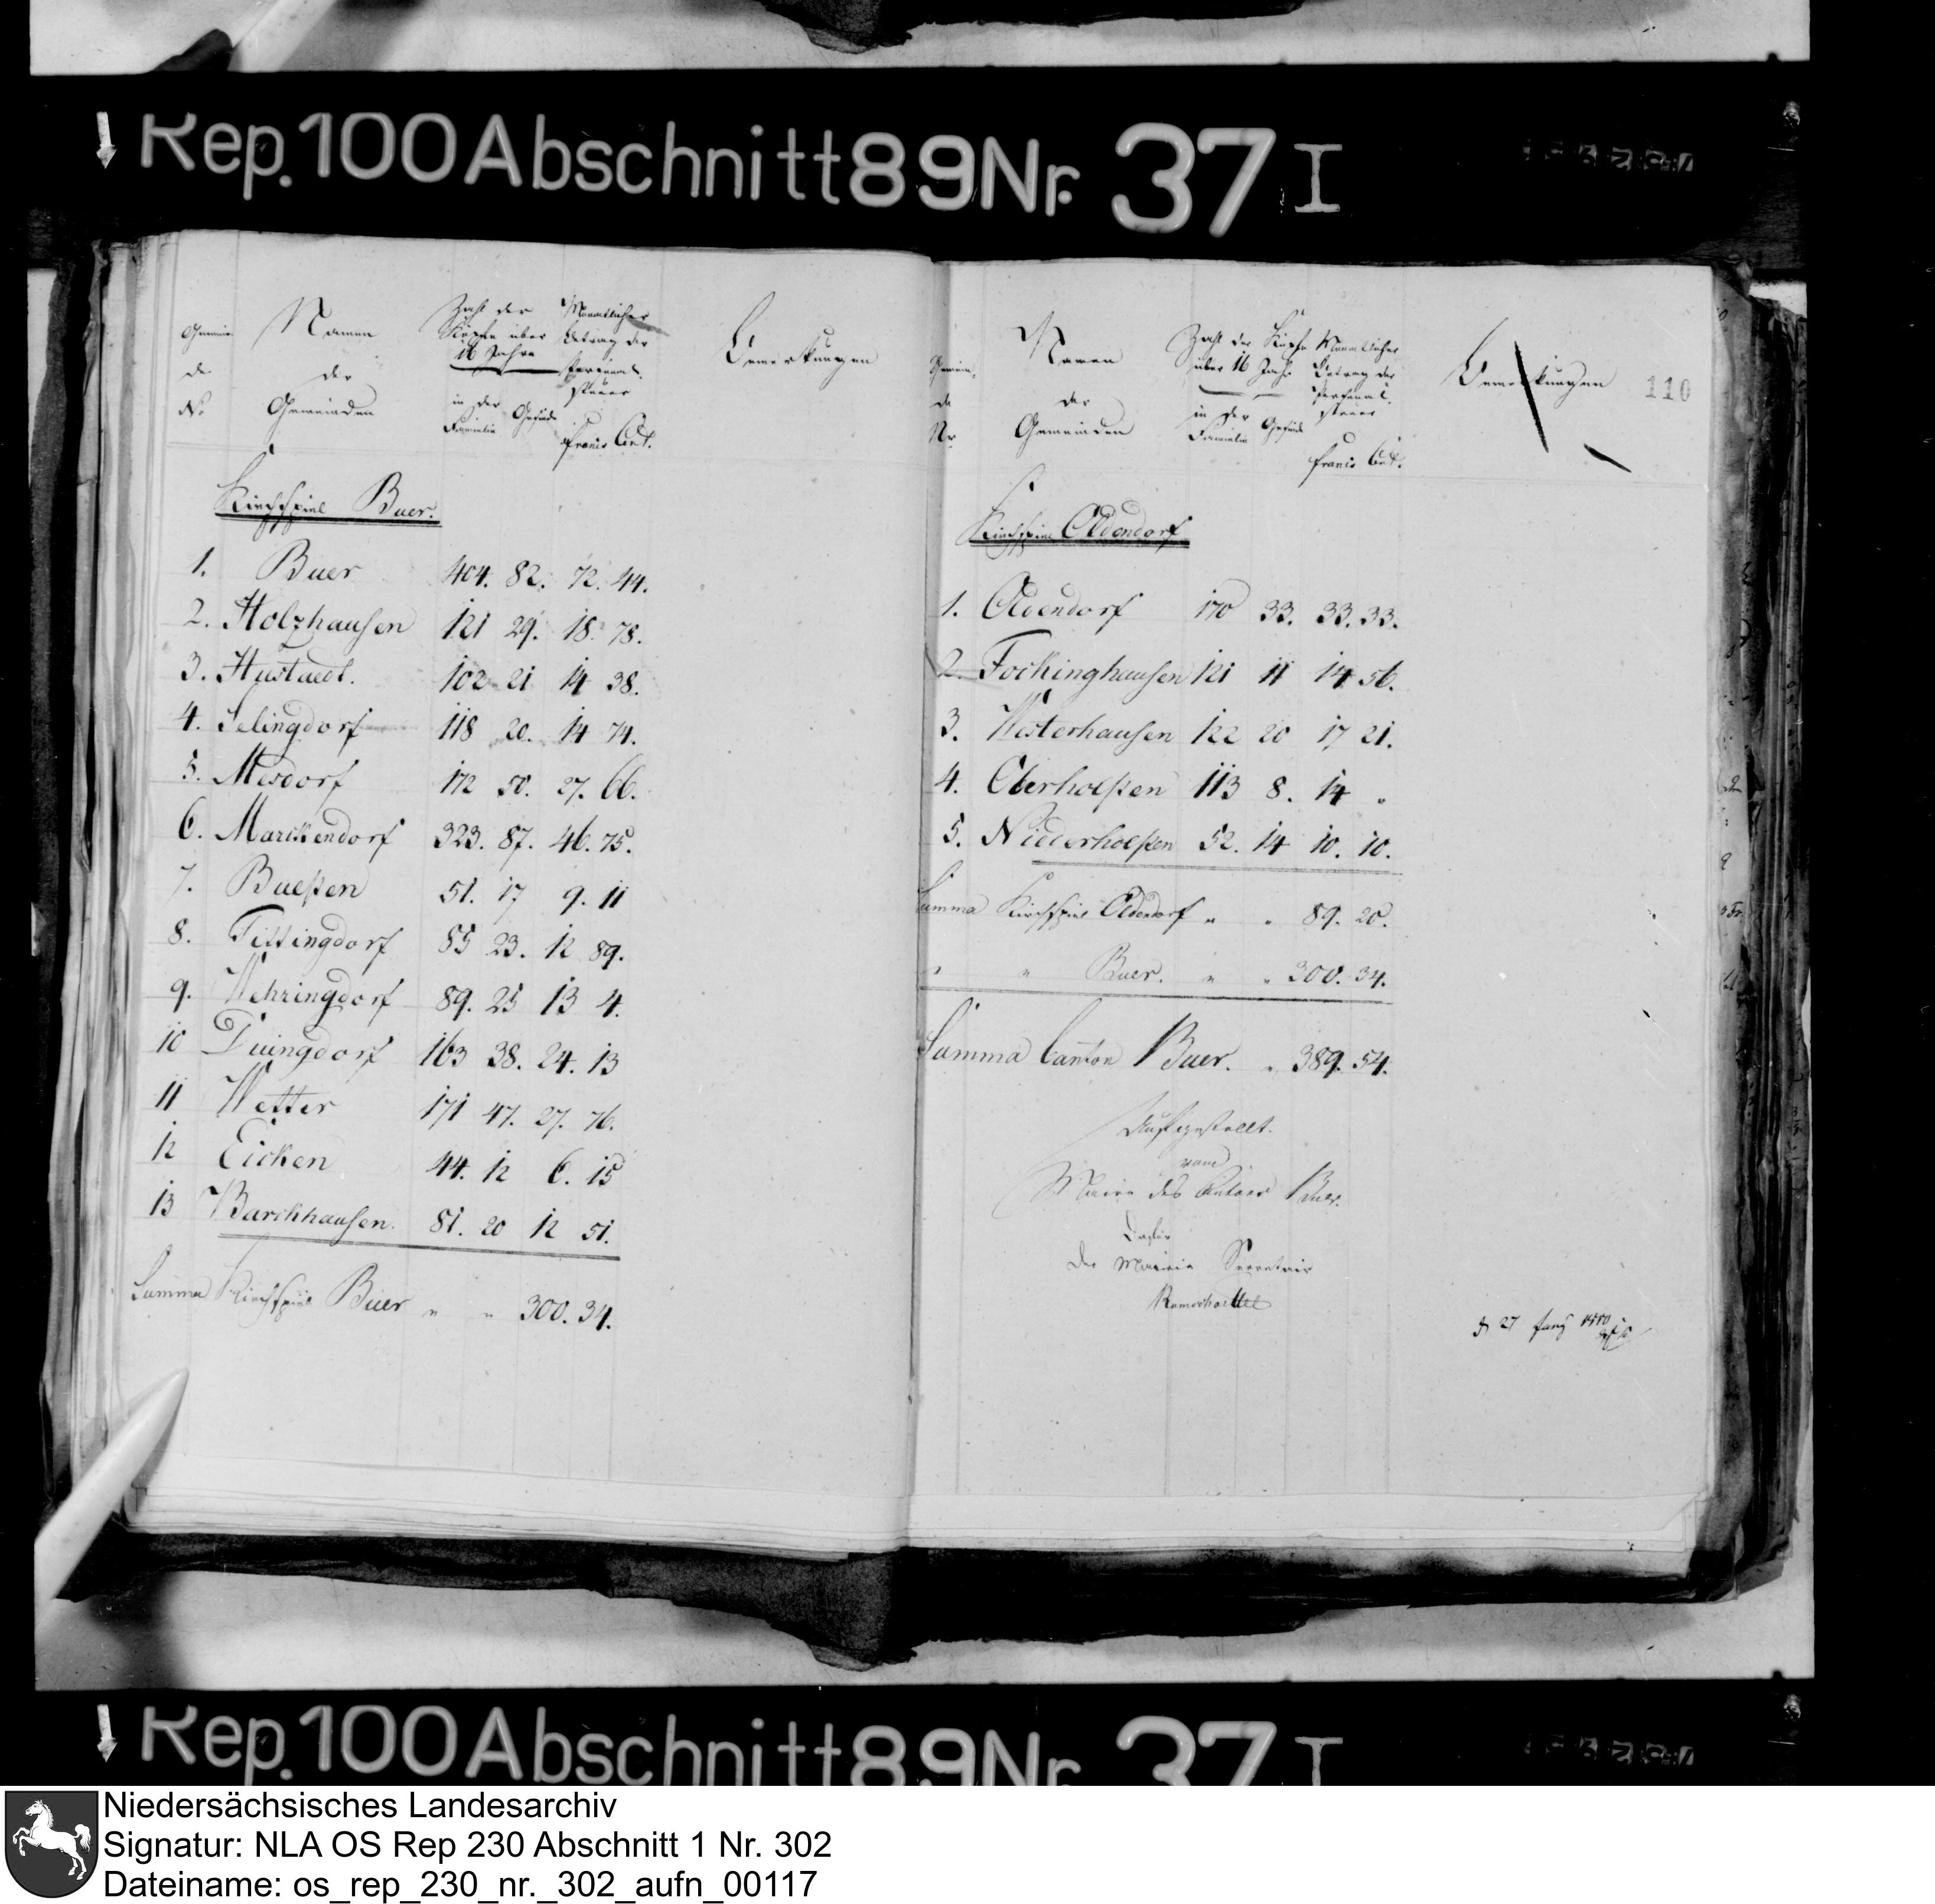 Rep. 100 Abschnitt 89 Nr. 37 I
Gemein
de
No
Namen
der
Gemeinden
Zahl der
Köpfe über
16 Jahre
in der Gesinde
Familie
Monatlicher
Betrag der
Personal-
steuer
Francs Cent.
Bemerkungen
Kirchspiel Buer.
1. Buer 404. 82. 72. 44.
2. Holzhausen 121 29. 18. 78.
3. Hustaedt. 102 21 14 38.
4. Selingdorf 118 20. 14 74.
5. Mesdorf 172 50. 27. 66.
6. Marckendorf 323. 87. 46. 75.
7. Bueßen 51. 17 9. 11
8. Tittingdorf 85 23. 12 89.
9. Wehringdorf 89. 25 13 4.
10 Duingdorf 163 38. 24. 13
11 Wetter 171 47. 27. 76.
12 Eicken 44. 12 6. 15
13 Barckhausen. 81. 20 12 51.
Summa Kirchspiel Buer " " 300. 34.
Gemein-
de
Nr.
Namen
der
Gemeinden
Zahl der Köpfe
über 16 Jahr
in der Gesinde
Familie
Monatlicher
Betrag der
Personal-
steuer
Francs Cent.
Bemerkungen
110
Kirchspiel Oldendorf
1. Oldendorf 170 33. 33. 33.
2. Fockinghausen 121 11 14 56.
3. Westerhausen 122 20 17 21.
4. Oberholßen 113 8. 14 "
5. Niederholßen 52. 14 10. 10.
Summa Kirchspiel Oldendorf " " 89. 20.
" " Buer. " " 300. 34.
Summa Canton Buer. " 389. 54.
Aufgestellt.
vom
Maire des Cantons Buer.
Der Mairie Secretair
27 1810
Rep. 100 Abschnitt 89 Nr. 37 I
Niedersächsisches Landesarchiv
Signatur: NLA OS Rep 230 Abschnitt 1 Nr. 302
Dateiname: os_rep_230_nr._302_aufn_00117